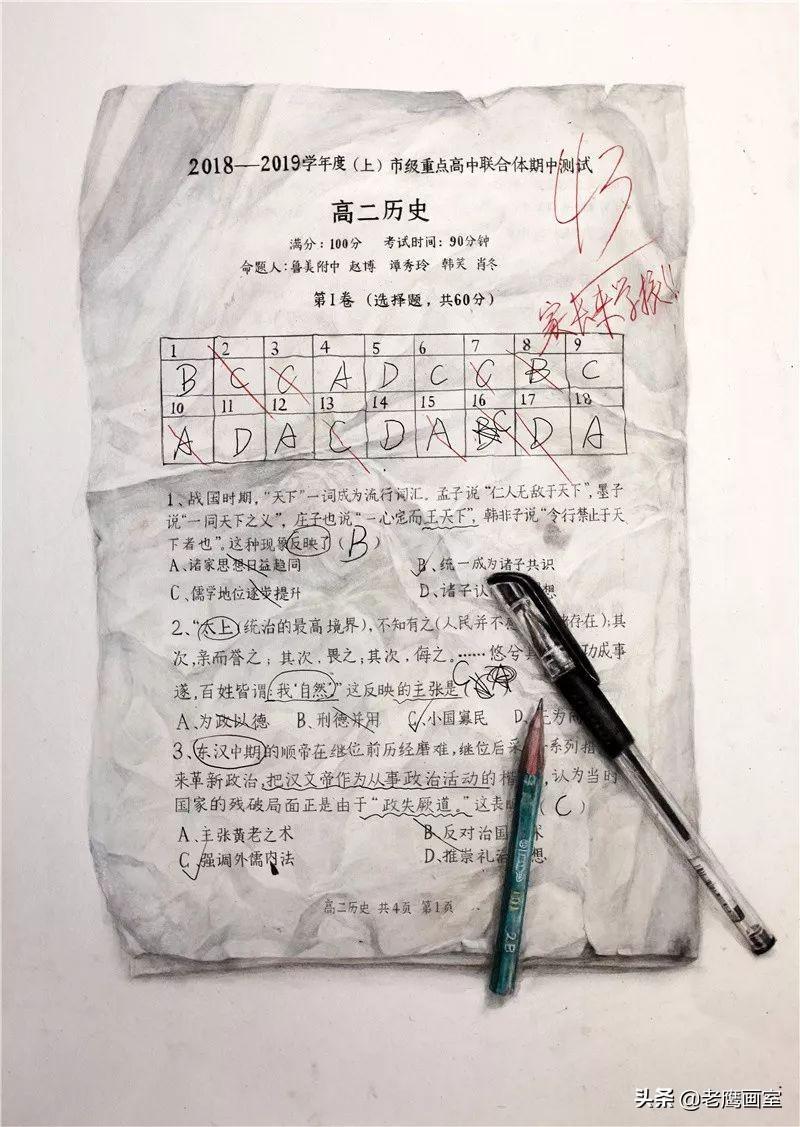 2018—2019学年度（上）市级重点高中联合体期中测试
43
高二历史
满分：100分 考试时间：90分钟
命题人：鲁美附中 赵博 谭秀玲 韩笑 肖冬
家长来学校!!
第I卷（选择题，共60分）
1 2 3 4 5 6 7 8 9
B C C A D C C B C
10 11 12 13 14 15 16 17 18
A D A C D A C D A
1、战国时期，“天下”一词成为流行词汇。孟子说“仁人无敌于天下”，墨子
说“一同天下之义”，庄子也说“一心定而王天下”，韩非子说“令行禁止于天
下者也”。这种现象反映了（B）
A、诸家思想日益趋同 B、统一成为诸子共识
C、儒学地位逐步提升 D、诸子认 想
2、“太上（统治的最高境界），不知有之（人民并不 存在）；其
次，亲而誉之；其次，畏之；其次，侮之。……悠兮 功成事
遂，百姓皆谓：我‘自然’”这反映的主张是 C
A、为政以德 B、刑德并用 C、小国寡民 D、无为
3、东汉中期的顺帝在继位前历经磨难，继位后采 系列
来革新政治，把汉文帝作为从事政治活动的 ，认为当时
国家的残破局面正是由于“政失厥道。”这表 （C）
A、主张黄老之术 B、反对治国 术
C、强调外儒内法 D、推崇礼治 想
高二历史 共4页 第1页
2B
头条 @老鹰画室